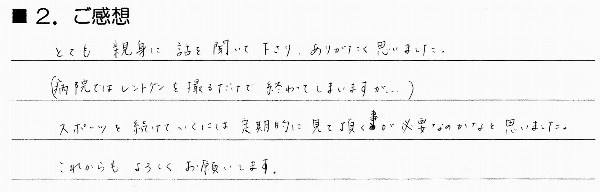 ■ 2. ご感想
とても 親身に 話を聞いて下さり、ありがたく思いました。
(病院ではレントゲンを撮るだけで 終わってしまいますが…)
スポーツを続けていくには 定期的に見て頂く事が必要なのかなと思いました。
これからも よろしく お願いします。